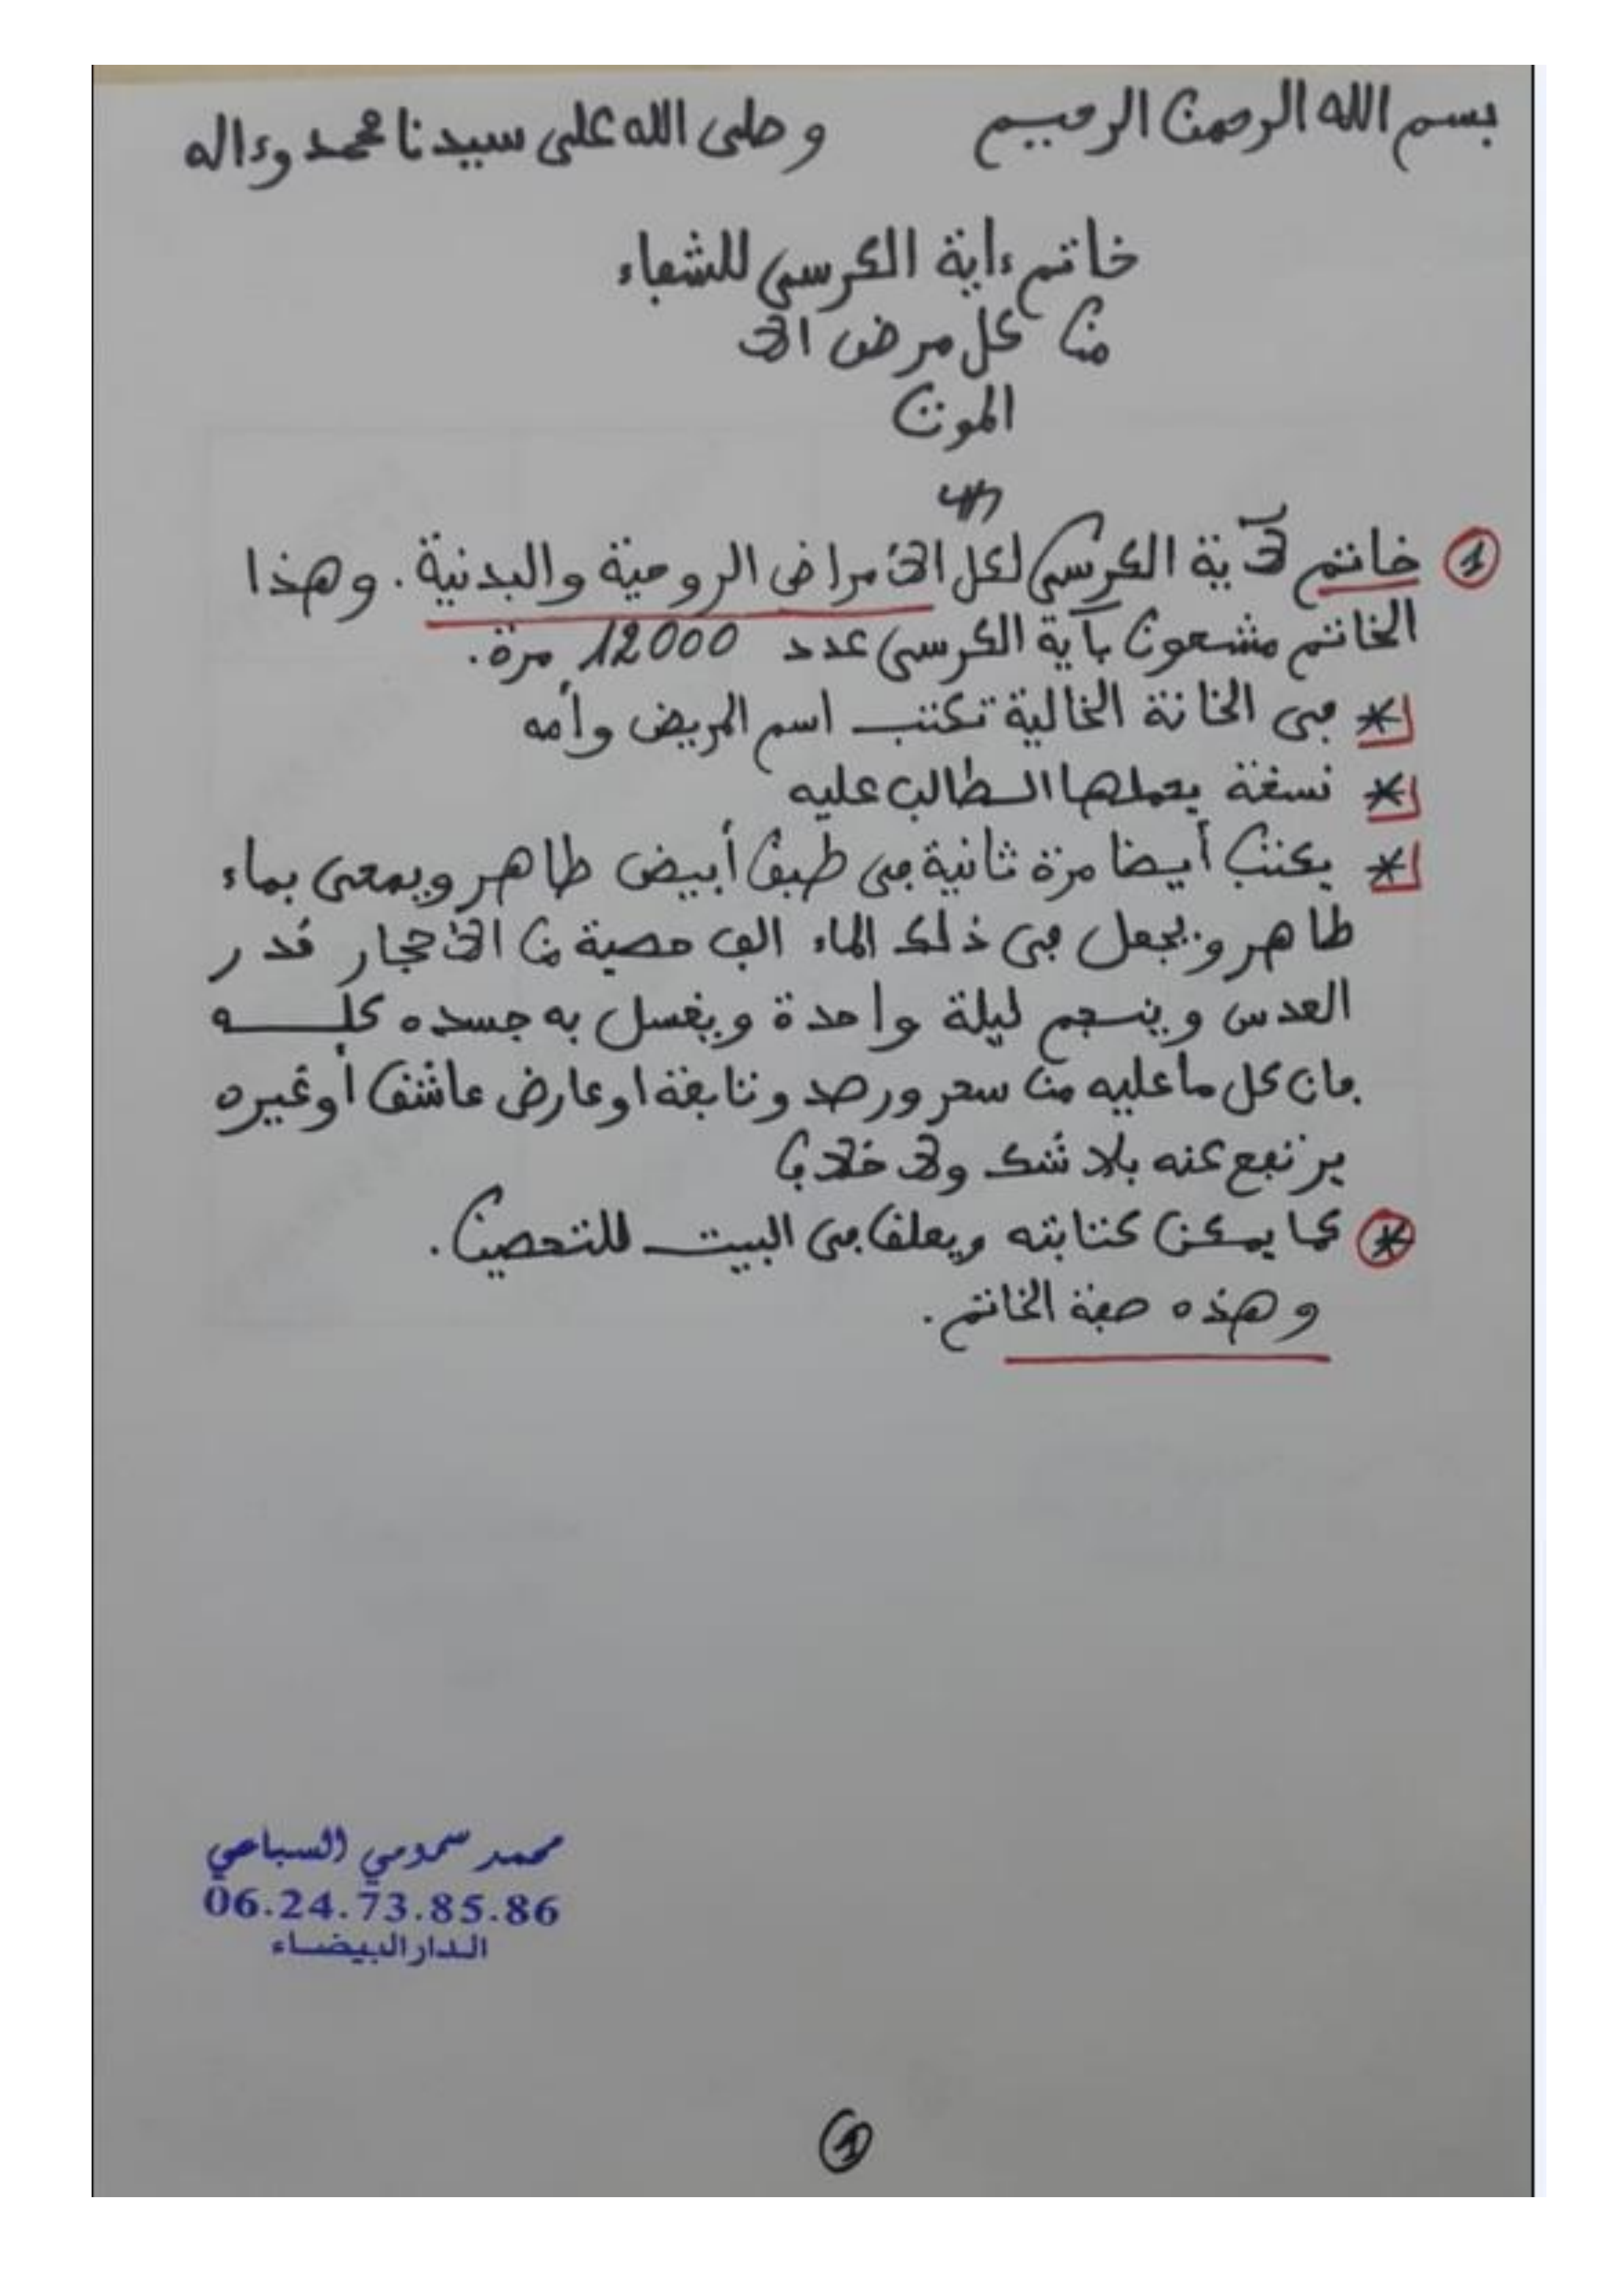 بسم الله الرحمن الرحيم وصلى الله على سيدنا محمد وءاله
خاتم ءاية الكرسي للشفاء
من كل مرض الا
الموت
خاتم لآية الكرسي لكل الأمراض الروحية والبدنية. وهذا ①
الخاتم مشحون بآية الكرسي عدد 12000 مرة.
* في الخانة الخالية تكتب اسم المريض وأمه
* نسخة يحملها الطالب عليه
* يكتب أيضا مرة ثانية في طبق أبيض طاهر ويمحى بماء
طاهر ويجعل في ذلك الماء الف حصية من الأحجار قدر
العدس وينجم ليلة واحدة ويغسل به جسده كله
فان كل ما عليه من سحر ورصد وتابعة او عارض عاشق أو غيره
يرتفع عنه بلا شك ولا خلاف
* كما يمكن كتابته ويعلق في البيت للتحصين.
وهذه صفة الخاتم.
محمد سمومي السباعي
06.24.73.85.86
الدار البيضاء
①